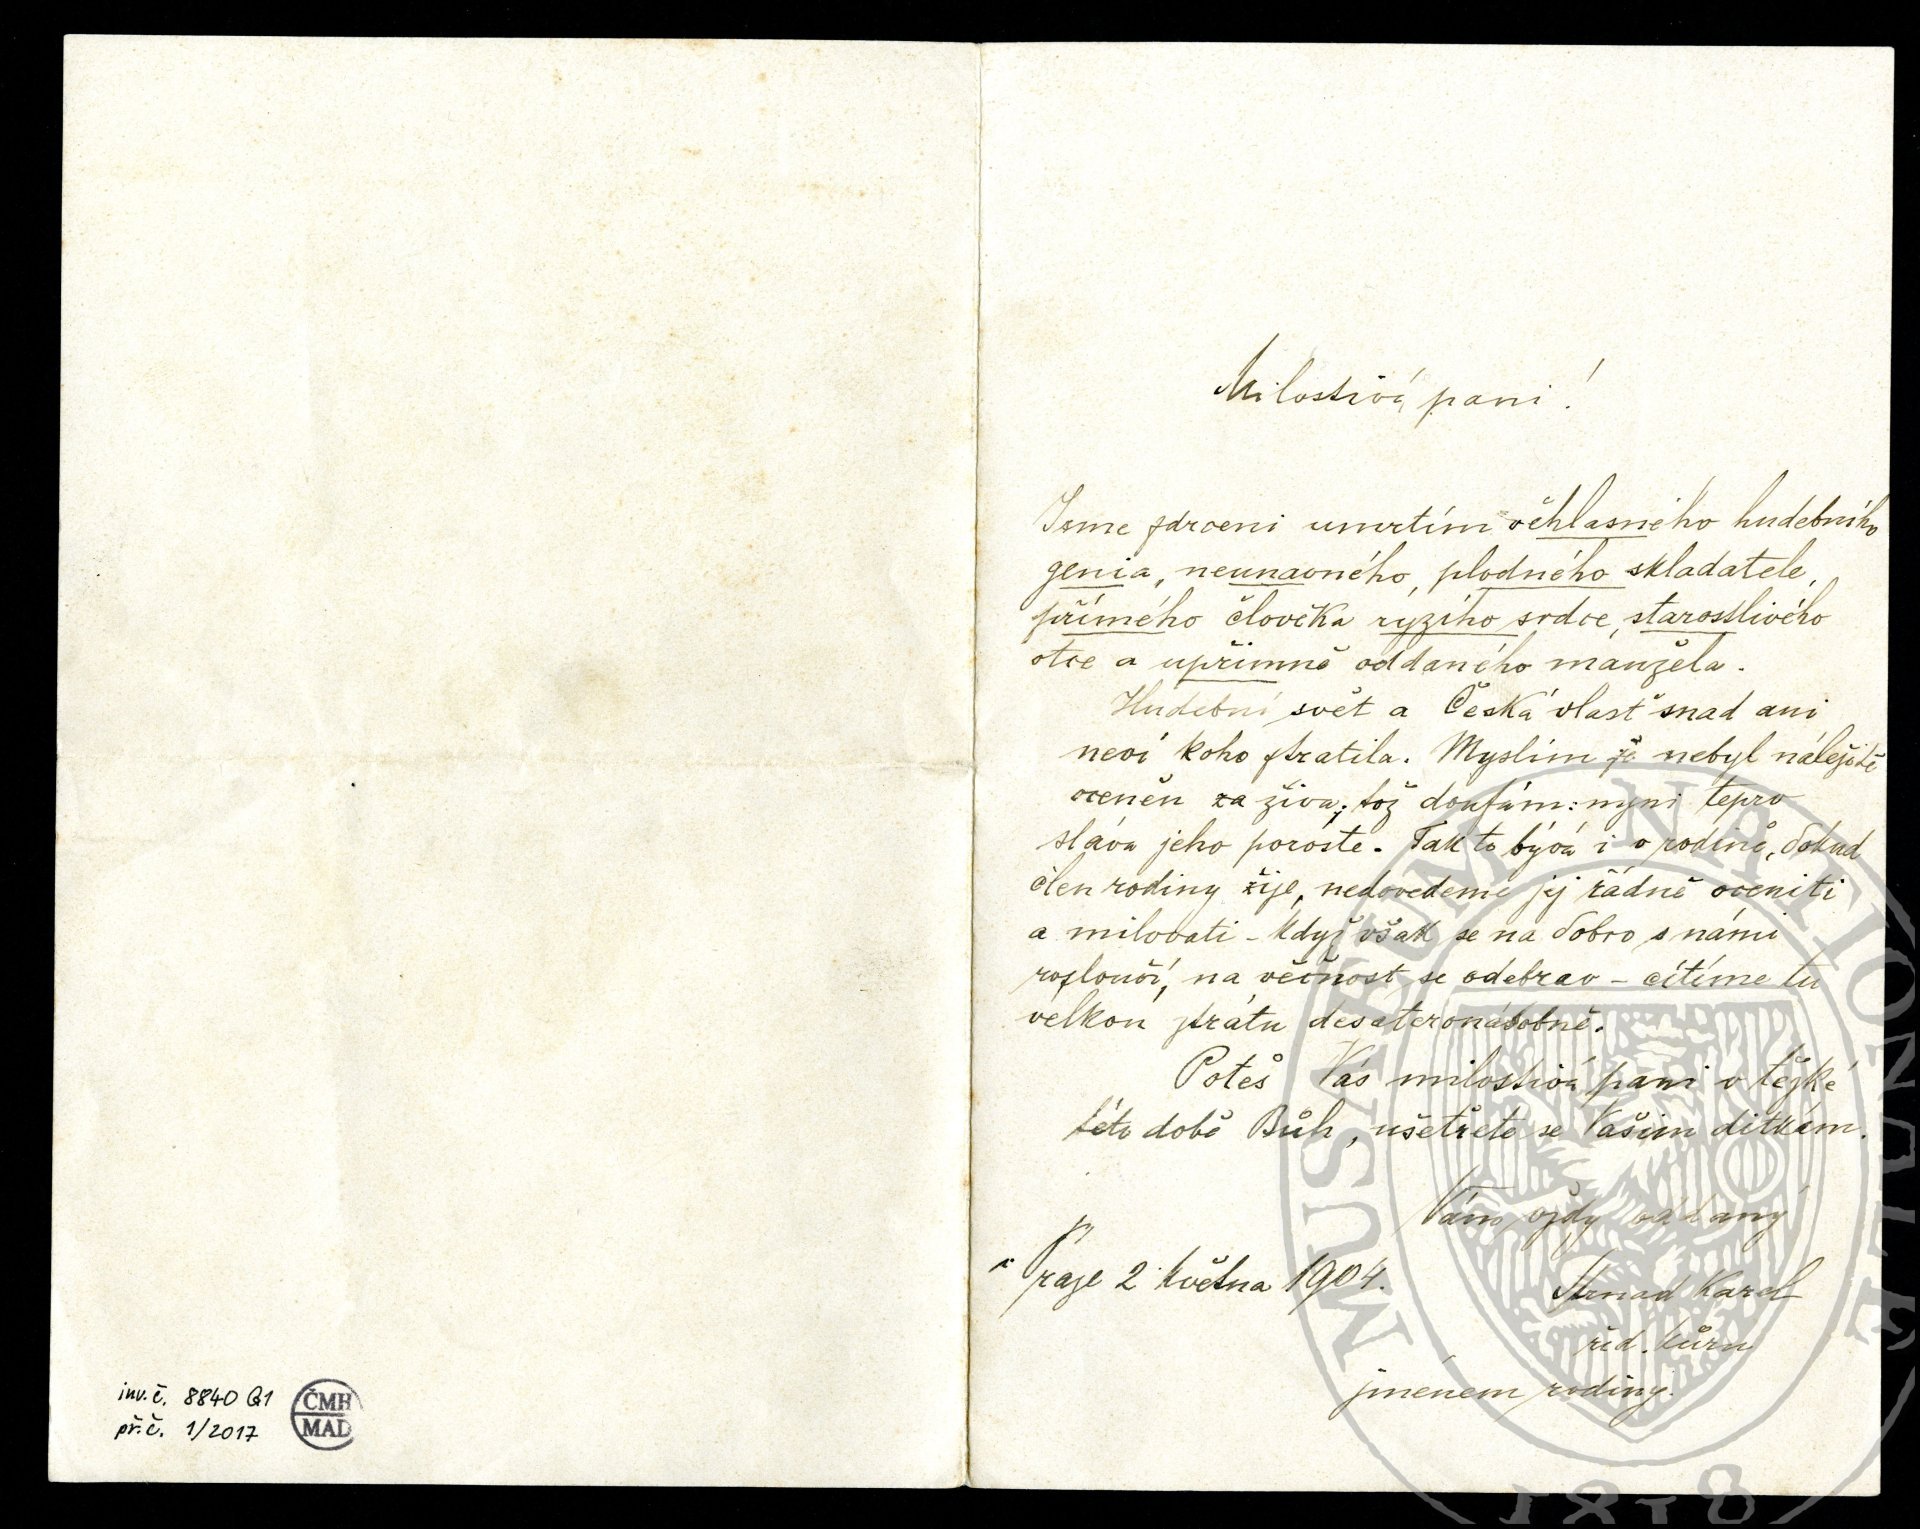 inv. č. 8840 G1
př. č. 1/2017
ČMH
MAD
Milostivá paní!
Jsme zdrceni umrtím věhlasného hudebního
genia, neunavného, plodného skladatele,
přímého člověka ryzího srdce, starostlivého
otce a upřímně oddaného manžela.
Hudební svět a Česká vlasť snad ani
neví koho ztratila. Myslím že nebyl náležitě
oceněn za živa; tož doufám: nyni tepro
sláva jeho poroste. Tak to bývá i v rodině, dokud
člen rodiny žije, nedovedeme jej řádně oceniti
a milovati – když však se na dobro s námi
rozloučí, na věčnost se odebrav – cítíme tu
velkou ztrátu desateronásobně.
Potěš Vás milostivá paní v težké
této době Bůh, ušetřete se Vašim dítkám.
Vám vždy oddaný
V Praze 2 května 1904.
Karel
řed. kůru
jménem rodiny.
MUSAEUM NATIONALE
1818